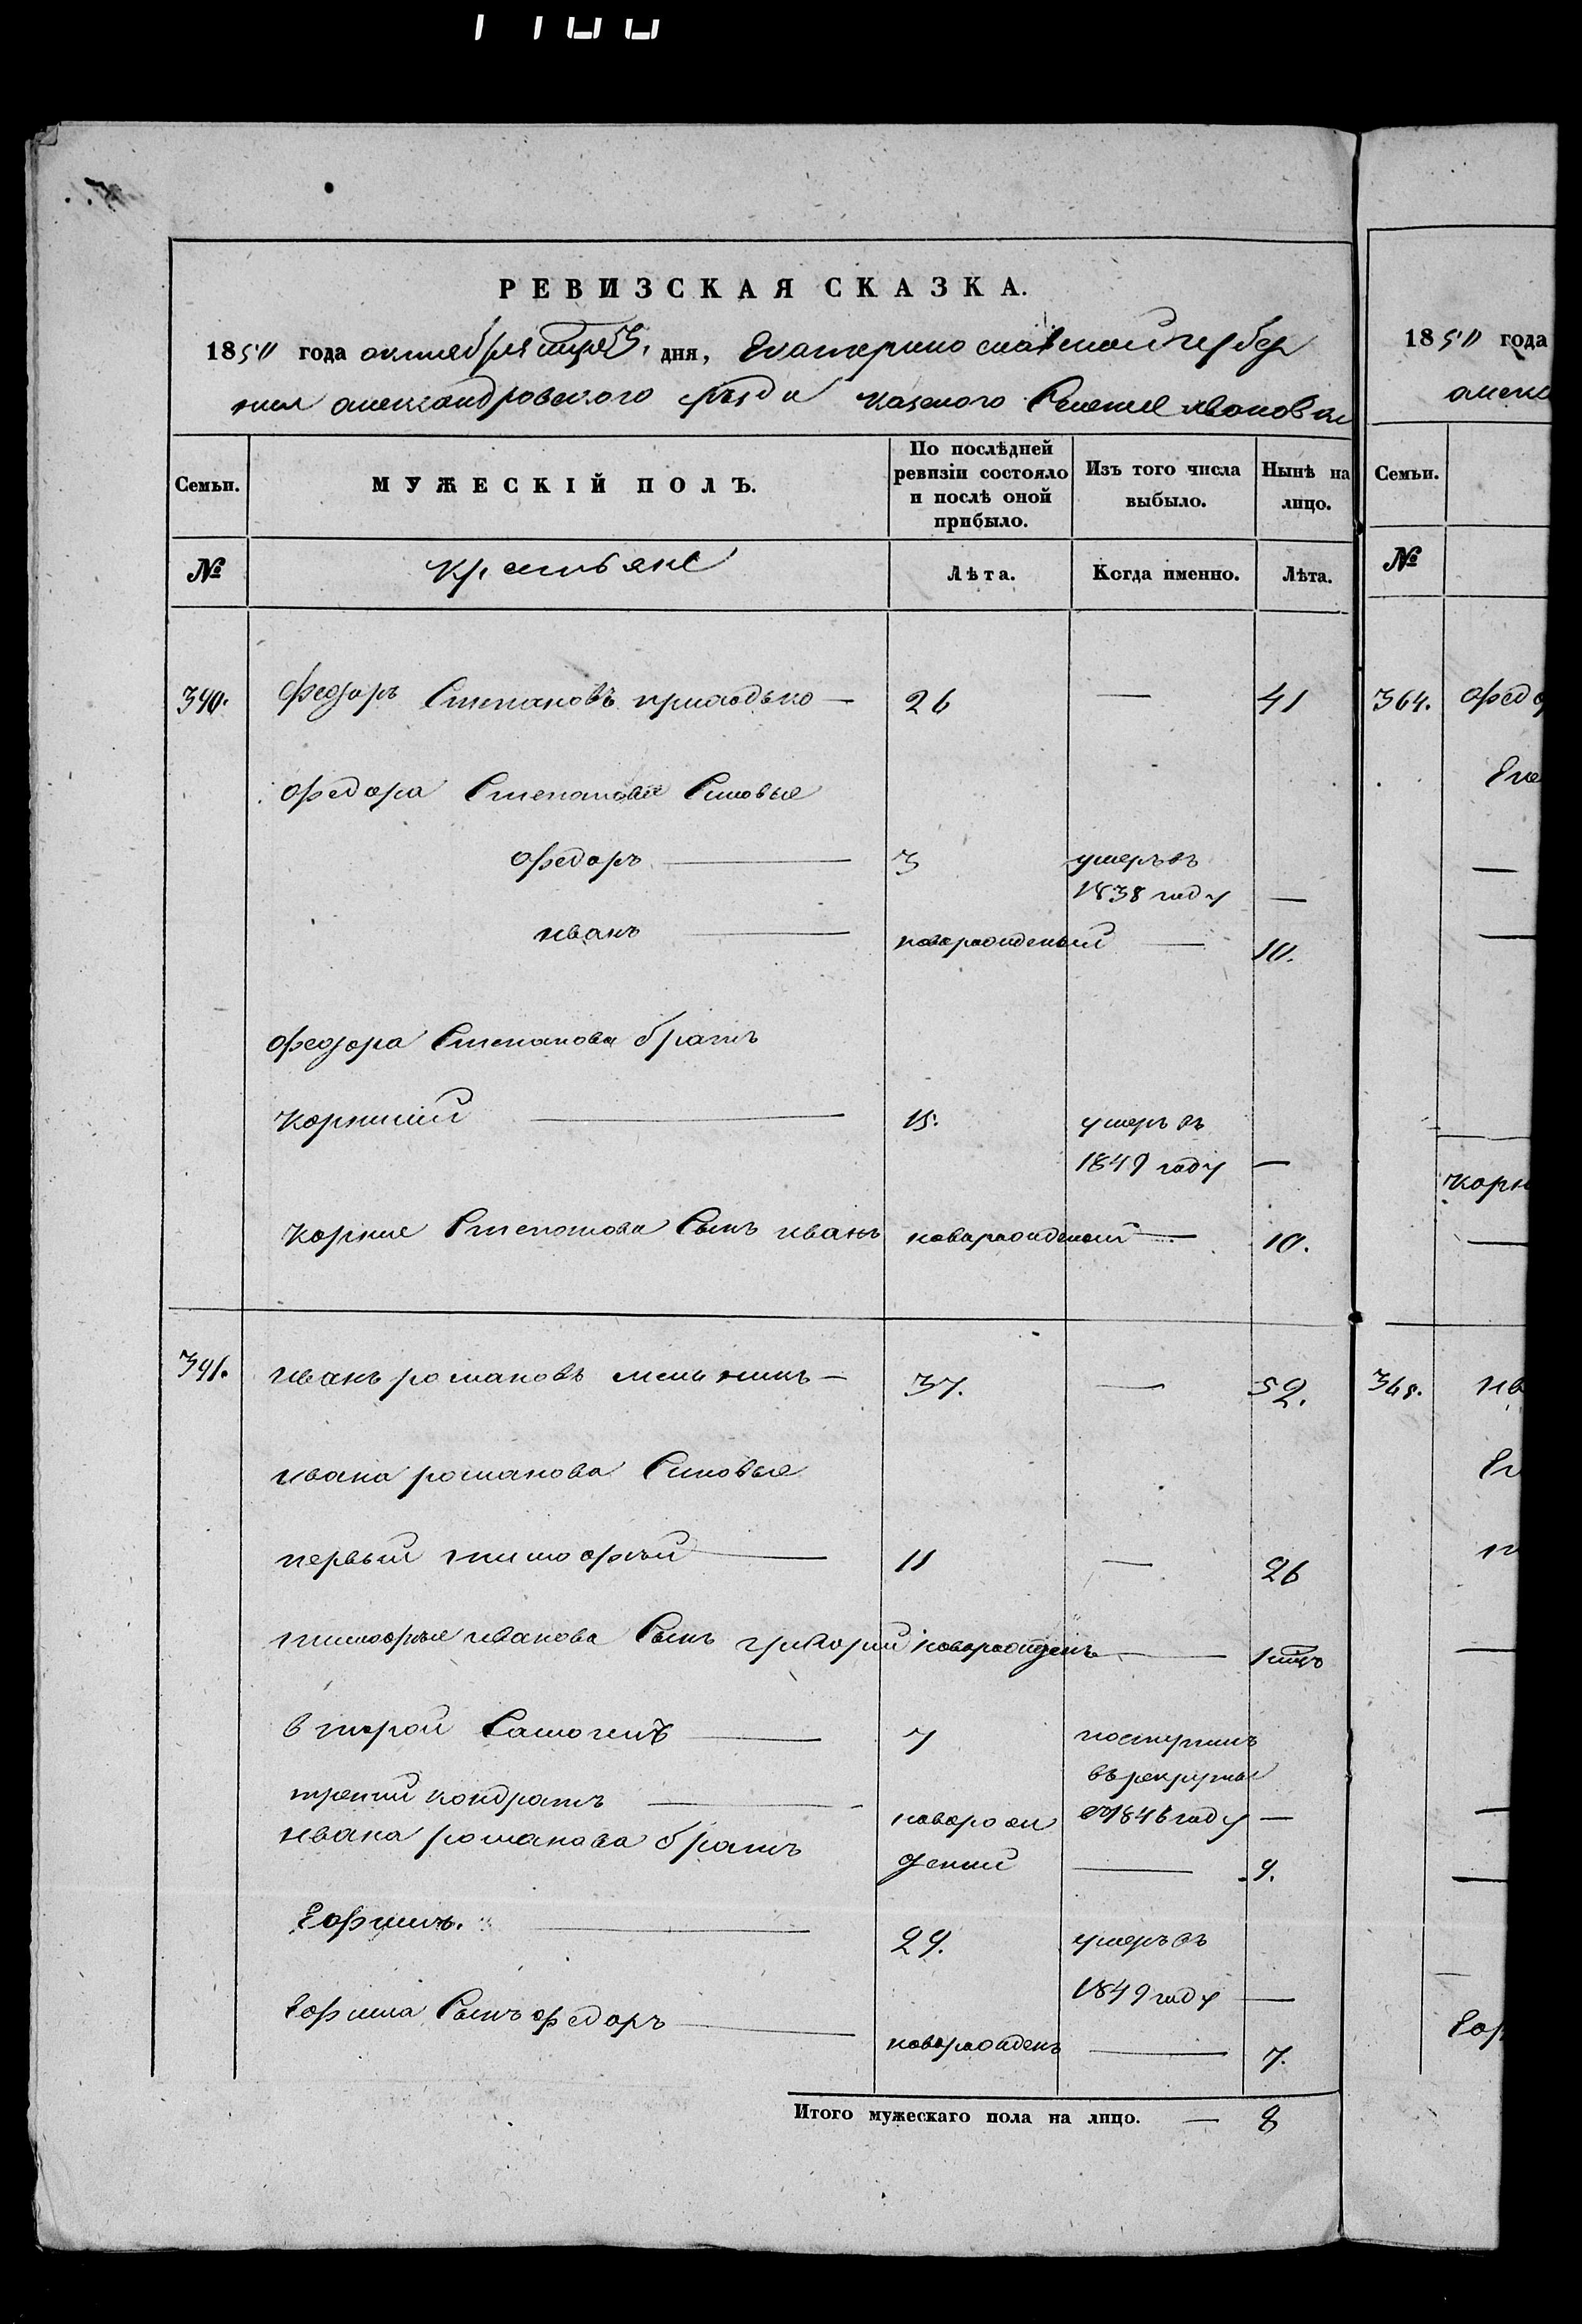 РЕВИЗСКАЯ СКАЗКА.
1850 года октября дня, Екатеринославской губер
нии александровского уѣзда казеного Селения
Семьи.
МУЖЕСКІЙ ПОЛЪ.
По послѣдней ревизіи состояло и послѣ оной прибыло.
Изъ того числа выбыло.
Нынѣ на лицо.
№
крестьяне
Лѣта.
Когда именно.
Лѣта.
340. Федоръ Степановъ приходько — 26 — 41
Федора Степанова Сыновые
Федоръ — 3 умеръ въ
1838 году —
иванъ — новорожденый — 10.
Федора Степанова братъ
корнией — 15. умеръ въ
1849 году —
корния Степанова Сынъ иванъ новорожденой — 10.
341. иванъ романовъ мельникъ — 37. — 52.
ивана романова Сыновые
первый тимофѣй — 11 — 26
тимофѣя иванова Сынъ григорий новорожденъ —
второй — 7 поступилъ
въ рекруты
третий кондратъ — новорож 1846 году —
ивана романова братъ
дений — 9.
Ефимъ. — 29. умеръ въ
1849 году —
Ефима Сынъ федоръ — новорожденъ — 7.
Итого мужескаго пола на лицо. — 8
1850 года
алекс
Семьи.
№
364. Федо
Его
корн
365. ив
Ег
Еф